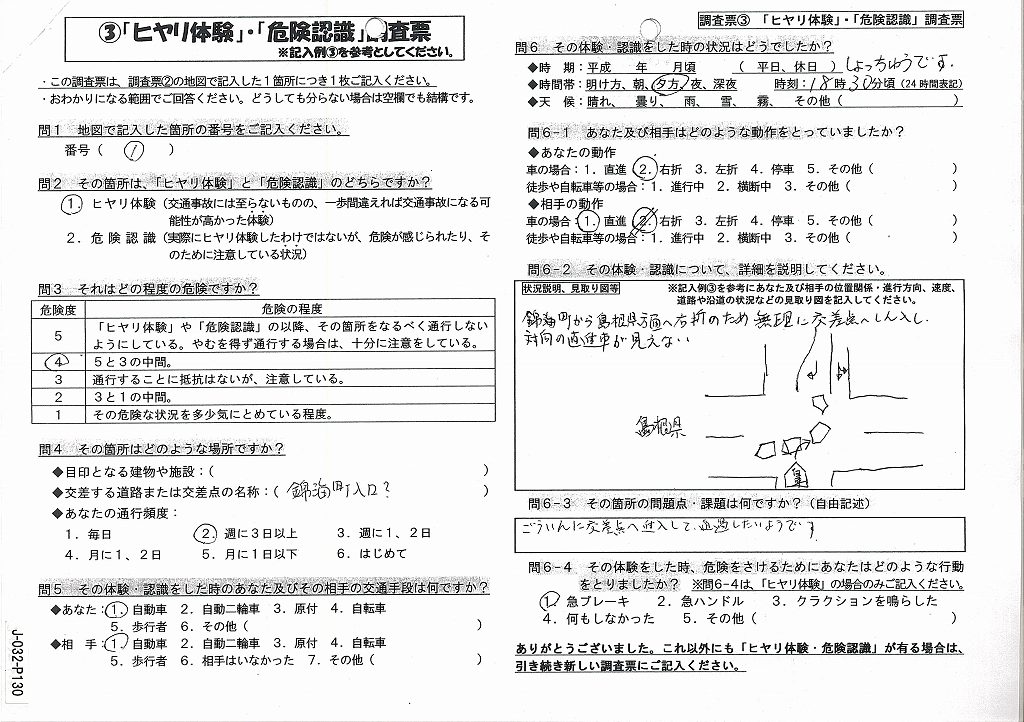 ③「ヒヤリ体験」・「危険認識」調査票
※記入例③を参考としてください。
・この調査票は、調査票②の地図で記入した１箇所につき１枚ご記入ください。
・おわかりになる範囲でご回答ください。どうしても分らない場合は空欄でも結構です。
問１　地図で記入した箇所の番号をご記入ください。
番号（　１　）
問２　その箇所は、「ヒヤリ体験」と「危険認識」のどちらですか？
１．ヒヤリ体験（交通事故には至らないものの、一歩間違えれば交通事故になる可
能性が高かった体験）
２．危険認識（実際にヒヤリ体験したわけではないが、危険が感じられたり、そ
のために注意している状況）
問３　それはどの程度の危険ですか？
危険度　危険の程度
５　「ヒヤリ体験」や「危険認識」の以降、その箇所をなるべく通行しない
ようにしている。やむを得ず通行する場合は、十分に注意をしている。
４　５と３の中間。
３　通行することに抵抗はないが、注意している。
２　３と１の中間。
１　その危険な状況を多少気にとめている程度。
問４　その箇所はどのような場所ですか？
◆目印となる建物や施設：（　）
◆交差する道路または交差点の名称：（錦海町入口？）
◆あなたの通行頻度：
１．毎日　２．週に３日以上　３．週に１、２日
４．月に１、２日　５．月に１日以下　６．はじめて
問５　その体験・認識をした時のあなた及びその相手の交通手段は何ですか？
◆あなた：１．自動車　２．自動二輪車　３．原付　４．自転車
５．歩行者　６．その他（　）
◆相　手：１．自動車　２．自動二輪車　３．原付　４．自転車
５．歩行者　６．相手はいなかった　７．その他（　）
J-032-P130
調査票③　「ヒヤリ体験」・「危険認識」調査票
問６　その体験・認識をした時の状況はどうでしたか？
◆時　期：平成　年　月頃　（　平日、休日　）しょっちゅうです．
◆時間帯：明け方、朝、夕方、夜、深夜　時刻：18時30分頃（24時間表記）
◆天　候：晴れ、　曇り、　雨、　雪、　霧、　その他（　）
問６-１　あなた及び相手はどのような動作をとっていましたか？
◆あなたの動作
車の場合：１．直進　２．右折　３．左折　４．停車　５．その他（　）
徒歩や自転車等の場合：１．進行中　２．横断中　３．その他（　）
◆相手の動作
車の場合：１．直進　２．右折　３．左折　４．停車　５．その他（　）
徒歩や自転車等の場合：１．進行中　２．横断中　３．その他（　）
問６-２　その体験・認識について、詳細を説明してください。
状況説明、見取り図等　※記入例③を参考にあなた及び相手の位置関係・進行方向、速度、
道路や沿道の状況などの見取り図を記入してください。
錦海町から島根県方面へ右折のため無理に交差点へしん入し．
対向の直進車が見えない
島根県
問６-３　その箇所の問題点・課題は何ですか？（自由記述）
ごういんに交差点へ進入して
問６-４　その体験をした時、危険をさけるためにあなたはどのような行動
をとりましたか？　※問６-４は、「ヒヤリ体験」の場合のみご記入ください。
１．急ブレーキ　２．急ハンドル　３．クラクションを鳴らした
４．何もしなかった　５．その他（　）
ありがとうございました。これ以外にも「ヒヤリ体験・危険認識」が有る場合は、
引き続き新しい調査票にご記入ください。